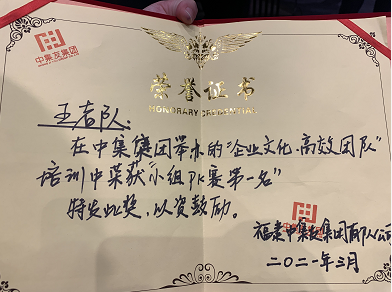 中集友集团
荣誉证书
HONORARY CREDENTIAL
王者队:
在中集集团举办的“企业文化、高效团队”
培训中荣获“小组PK赛第一名”
特发此奖,以资鼓励。
福建中集友集团有限公司
二〇二一年三月